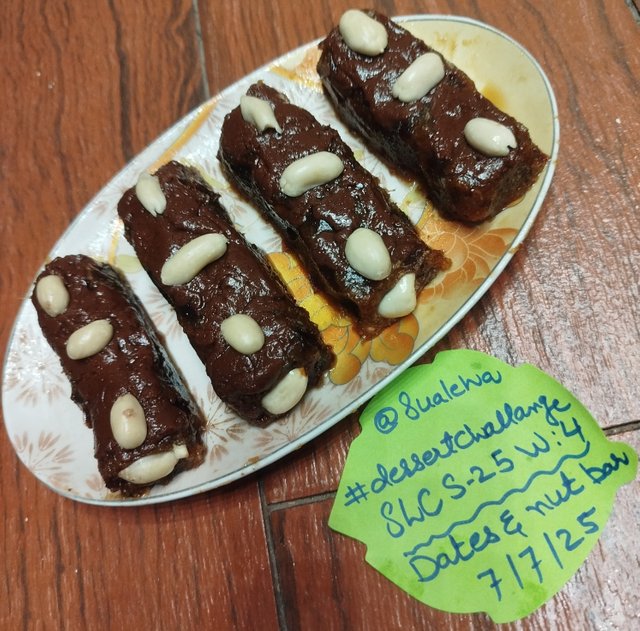 @Sualeha
#dessertchallange
SLC S-25 W:4
Dates & nut bar
7/7/25